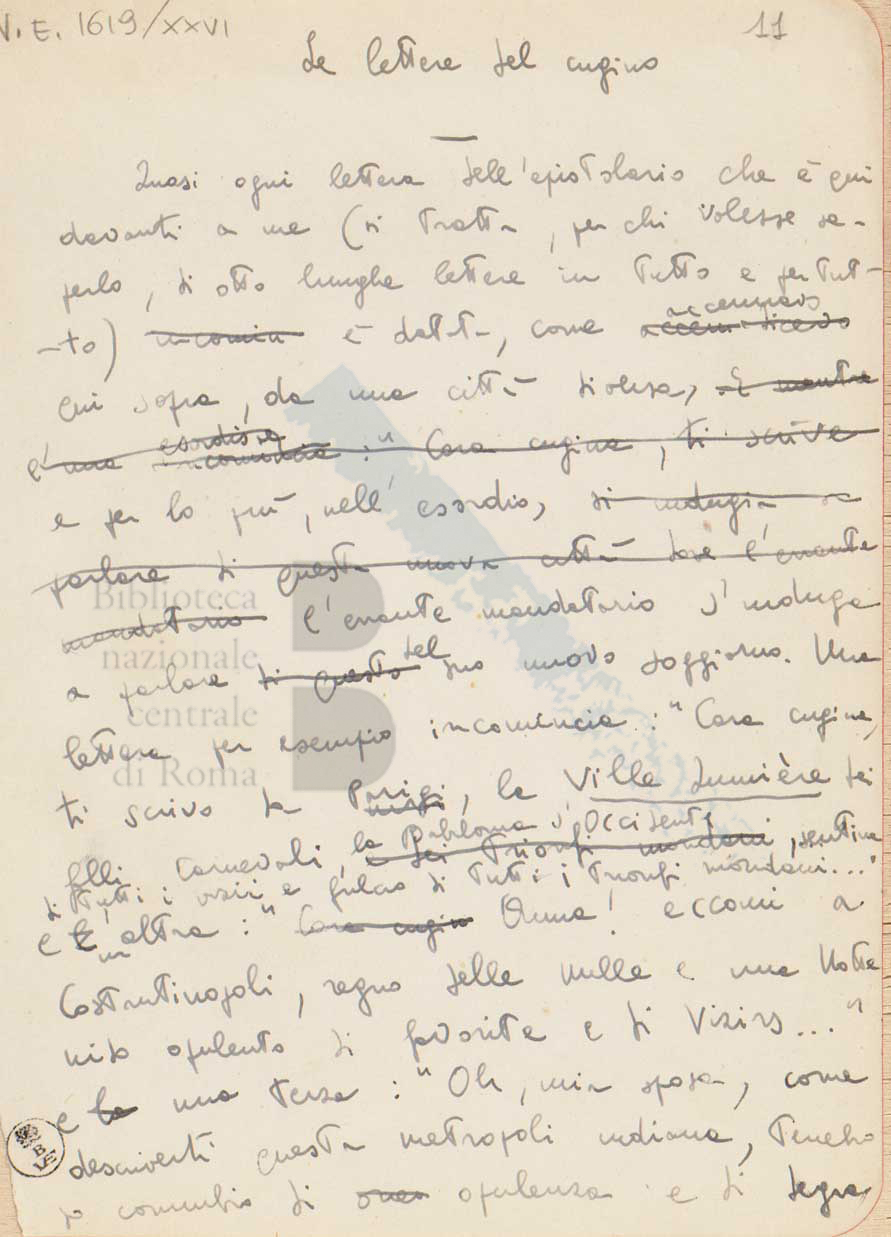 V. E. 1619/XXVI
11
Le lettere del cugino
Quasi ogni lettera dell'epistolario che è qui
davanti a me (si tratta, per chi volesse sa-
perlo, di otto lunghe lettere in tutto e per tut-
-to) incomin è datata, come accem dicevo accennavo
qui sopra, da una città diversa, E mentre
l'una incomincia esordisce : "Cara cugina, ti scrive
e per lo più, nell'esordio, si indugia a
parlare di questa nuova città dove l'errante
mandatario l'errante mandatario s'indugia
a parlare di questo del suo nuovo soggiorno. Una
lettera per esempio incomincia: "Cara cugina,
ti scrivo da Parigi, la Ville Lumière dei
folli Carnevali, la Babilonia d'Occidente e dei Trionfi mondani, sentina
di tutti i vizii e fulcro di tutti i Trionfi mondani..."
e un'altra: "Cara cugina Anna! eccomi a
Costantinopoli, regno delle Mille e una Notte
nido opulento di favorite e di Vizirs..."
e la una terza: "Oh, mia sposa, come
descriverti questa metropoli indiana, tenebro
so connubio di opulenza e di degra
Biblioteca
nazionale
centrale
di Roma